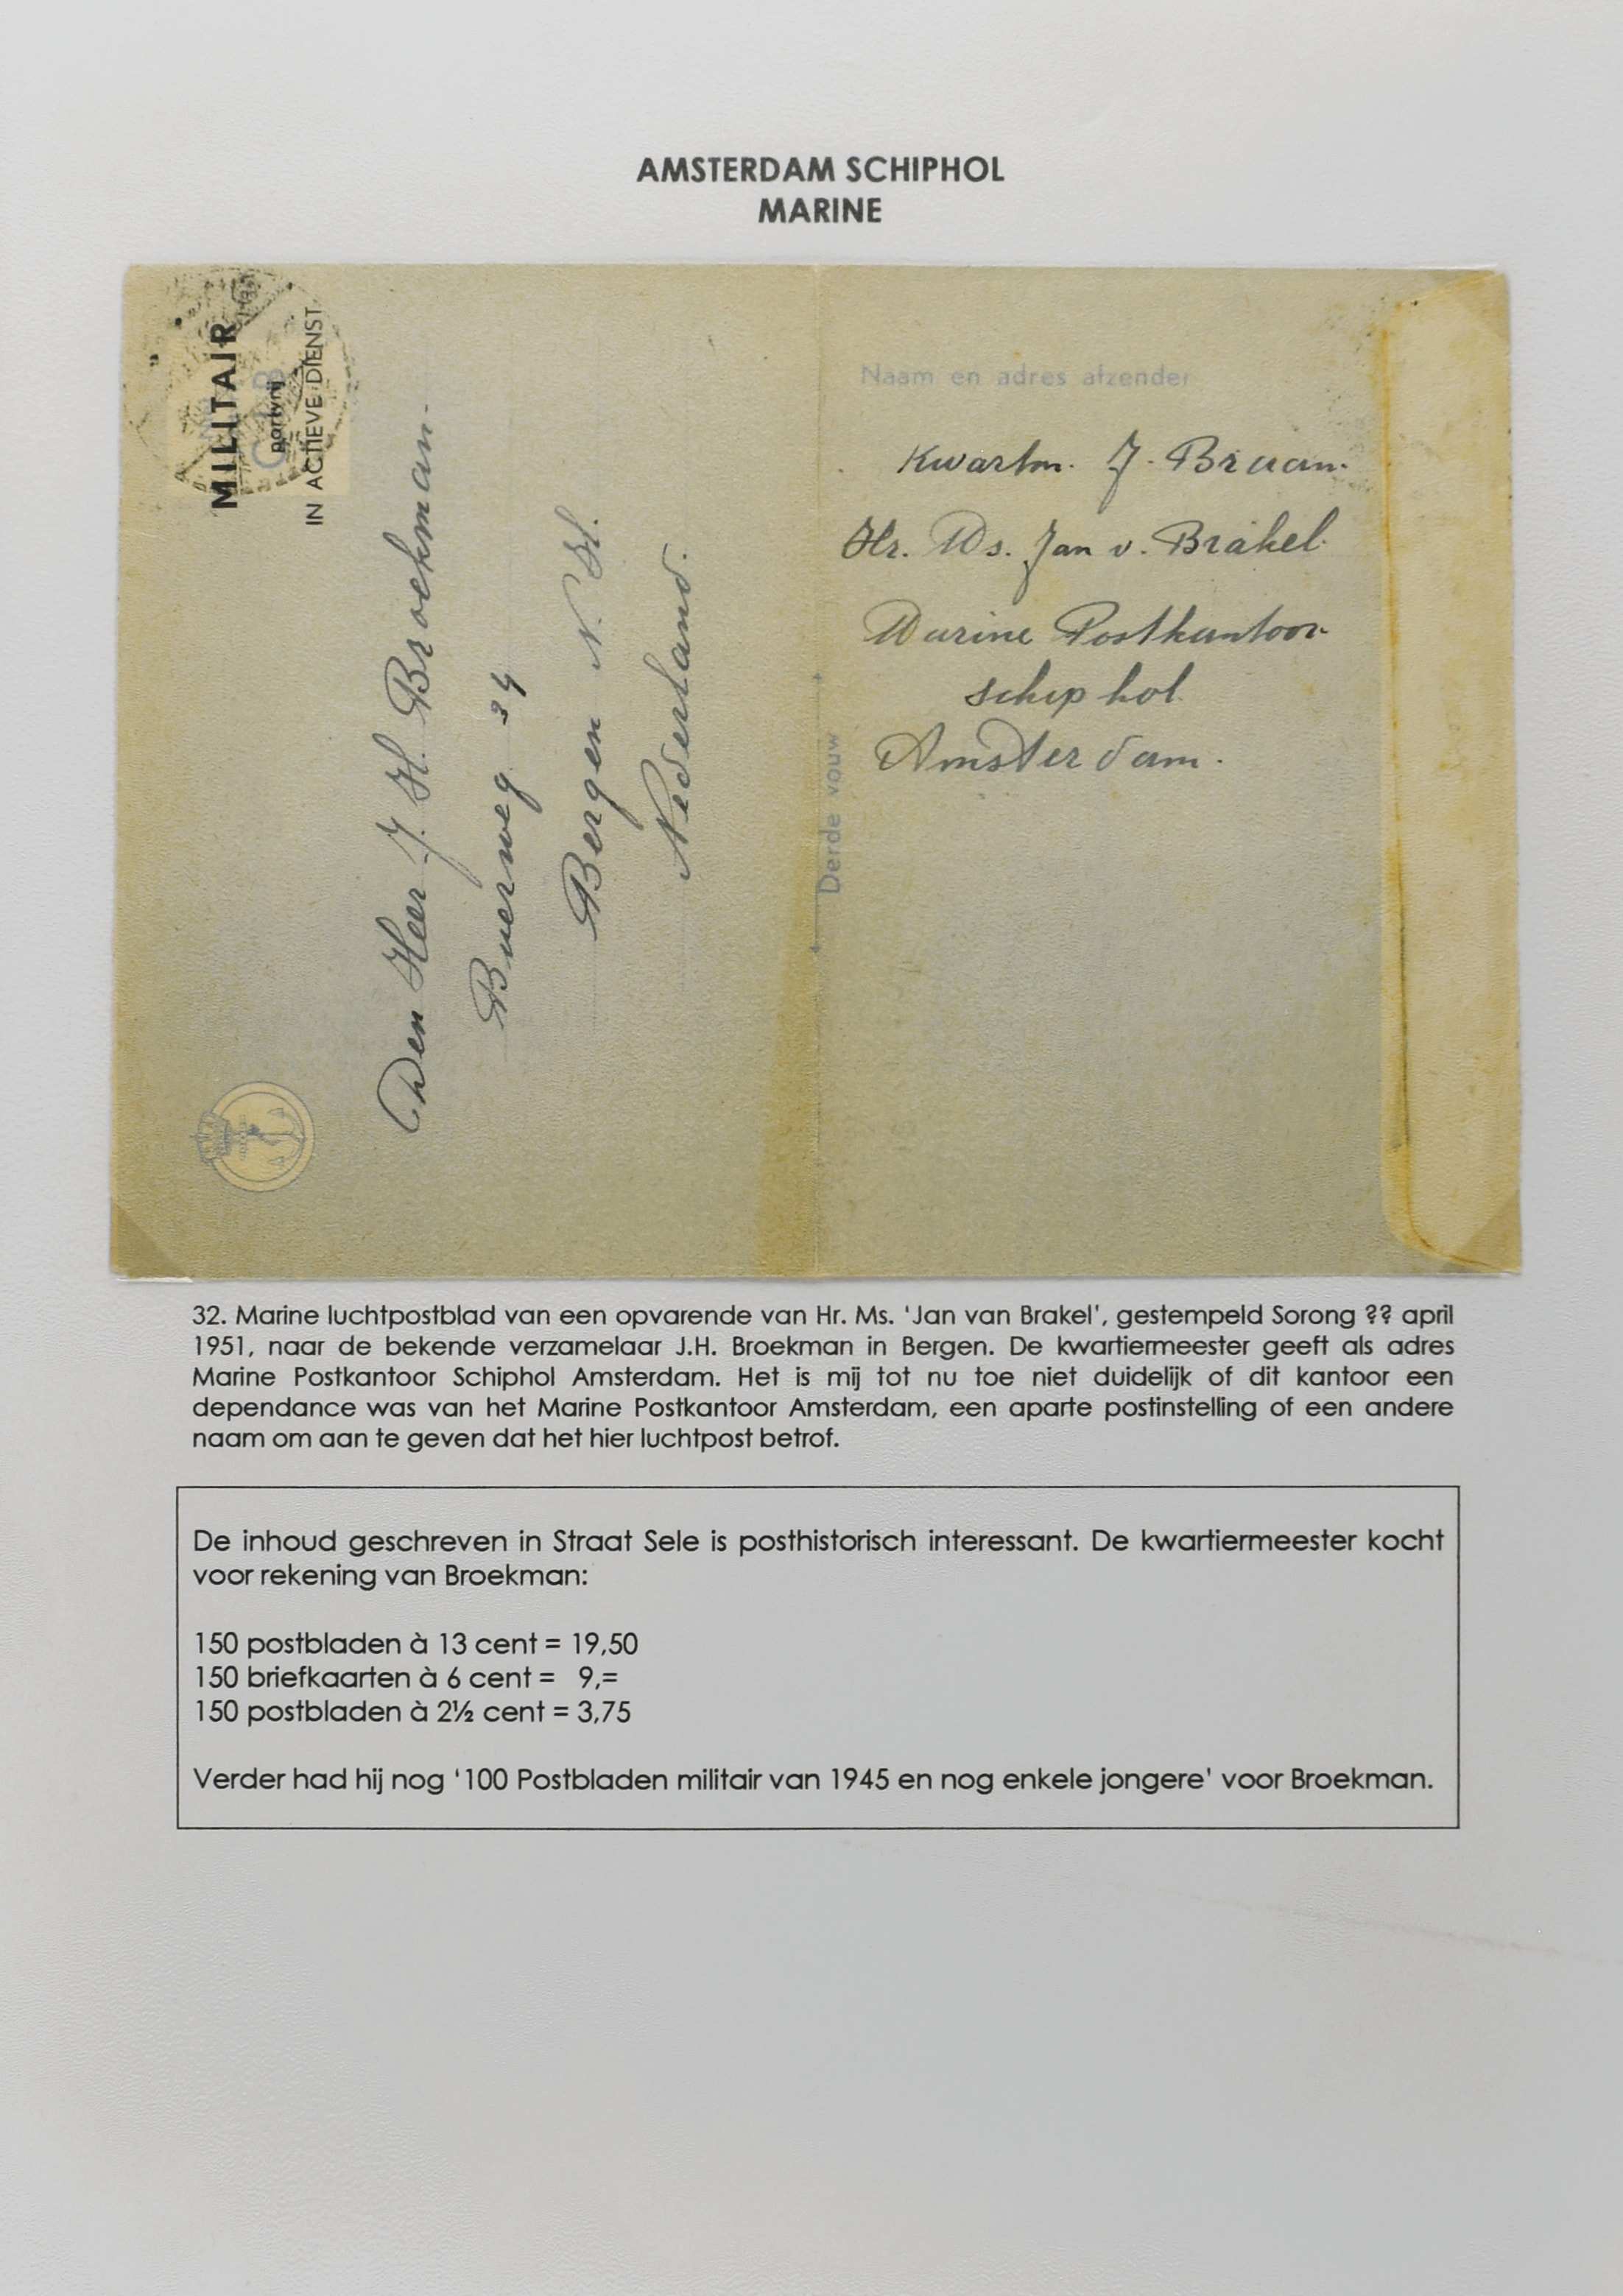 AMSTERDAM SCHIPHOL
MARINE
MILITAIR
portvrij
IN ACTIEVE DIENST
Den Heer J. H. Broekman.
Buerweg 34
Bergen N. H.
Nederland.
Naam en adres afzender
Kwartm. J. Braam.
Hr. Ms. Jan v. Brakel.
Marine Postkantoor
Schiphol
Amsterdam.
Derde vouw
32. Marine luchtpostblad van een opvarende van Hr. Ms. ‘Jan van Brakel’, gestempeld Sorong ?? april
1951, naar de bekende verzamelaar J.H. Broekman in Bergen. De kwartiermeester geeft als adres
Marine Postkantoor Schiphol Amsterdam. Het is mij tot nu toe niet duidelijk of dit kantoor een
dependance was van het Marine Postkantoor Amsterdam, een aparte postinstelling of een andere
naam om aan te geven dat het hier luchtpost betrof.
De inhoud geschreven in Straat Sele is posthistorisch interessant. De kwartiermeester kocht
voor rekening van Broekman:
150 postbladen à 13 cent = 19,50
150 briefkaarten à 6 cent = 9,=
150 postbladen à 2½ cent = 3,75
Verder had hij nog ‘100 Postbladen militair van 1945 en nog enkele jongere’ voor Broekman.